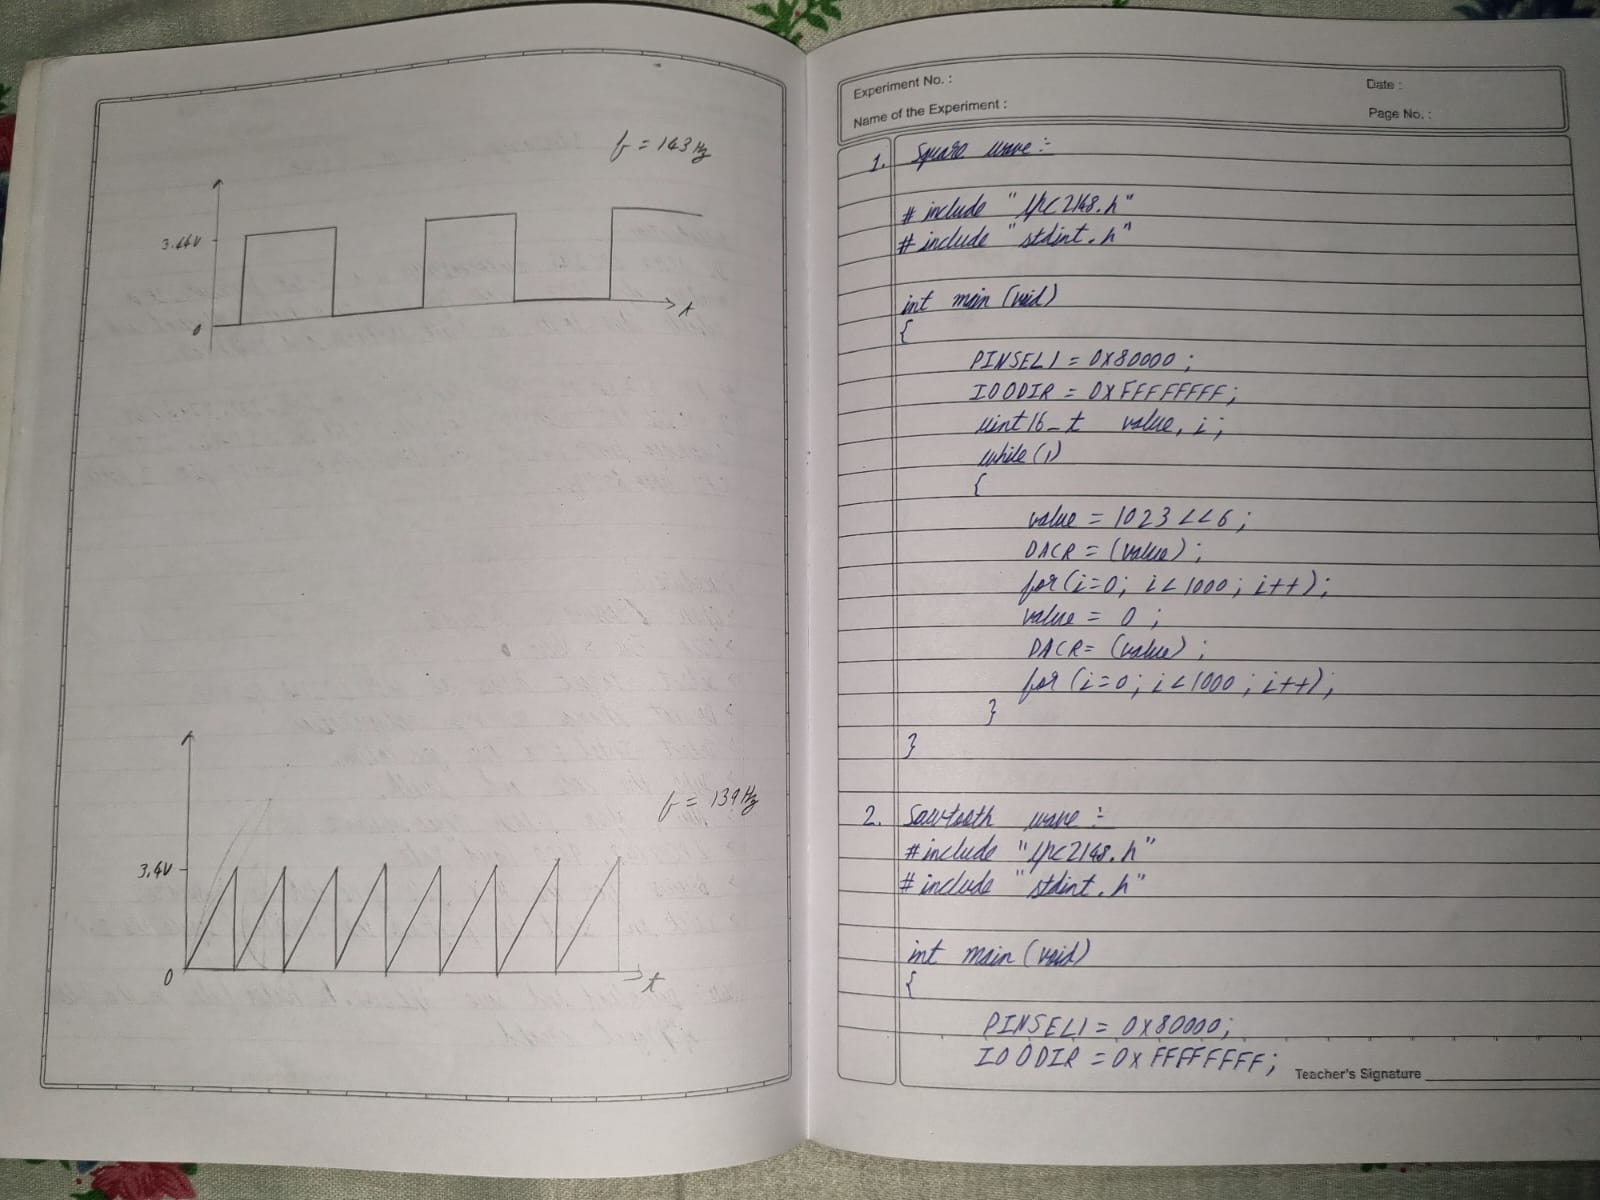 f = 143 Hz
0
t
f = 139 Hz
3.4V
0
t
Experiment No. :
Date :
Name of the Experiment :
Page No. :
1. Square wave :-
# include "lpc2148.h"
# include "stdint.h"
int main (void)
{
PINSEL1 = 0X80000 ;
IO0DIR = 0XFFFFFFFF;
uint16_t value, i ;
while (1)
{
value = 1023 <<6 ;
DACR = (value) ;
for (i=0; i<1000; i++);
value = 0 ;
DACR = (value) ;
for (i=0; i<1000; i++);
}
}
2. Sawtooth wave :-
# include "lpc2148.h"
# include "stdint.h"
int main (void)
{
PINSEL1 = 0X80000;
IO0DIR = 0XFFFFFFFF;
Teacher's Signature